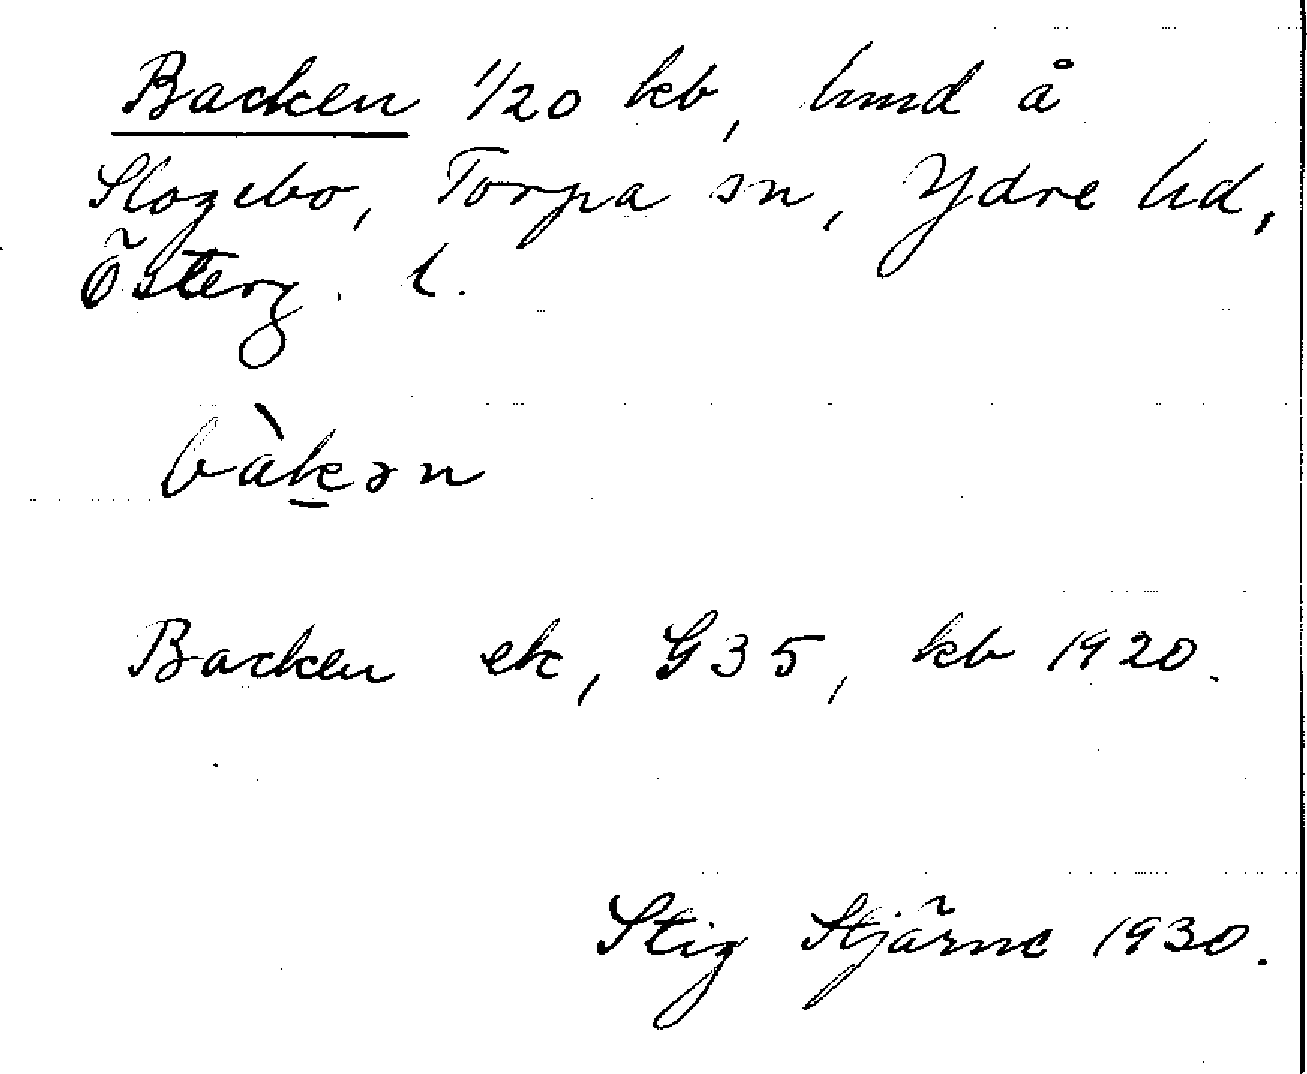 Backen 1/20 kb, lund å
Slogebo, Torpa sn, Ydre hd,
Österg. l.
bàkən
Backen ek, G35, kb 1920.
Stig Stjärne 1930.